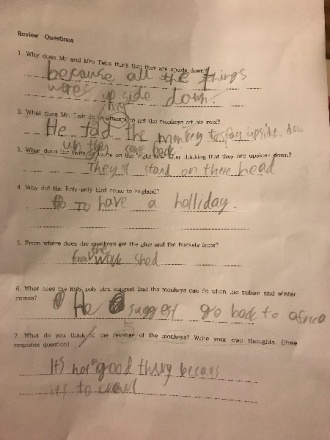 Review Questions
1. Why does Mr and Mrs Twit think that they are upside down?
because all the things
were up side down.
2. What does Mr. Twit do
He tad the monkey to stay upside dow
un they come back
3. What does the thinking that they are upside down?
They'll stand on there head
4. Why did the Roly-poly bird come to England?
To have a holliday.
5. From where does the monkeys get the glue and the buckets from?
from the work shed
6. What does the Roly poly bird suggest that the monkeys can do when the autumn and winter
comes?
He suggest go back to africa
7. What do you think of the revenge of the monkeys? Write your own thoughts. (free
response question)
It's not good thing becaus
its to cruel